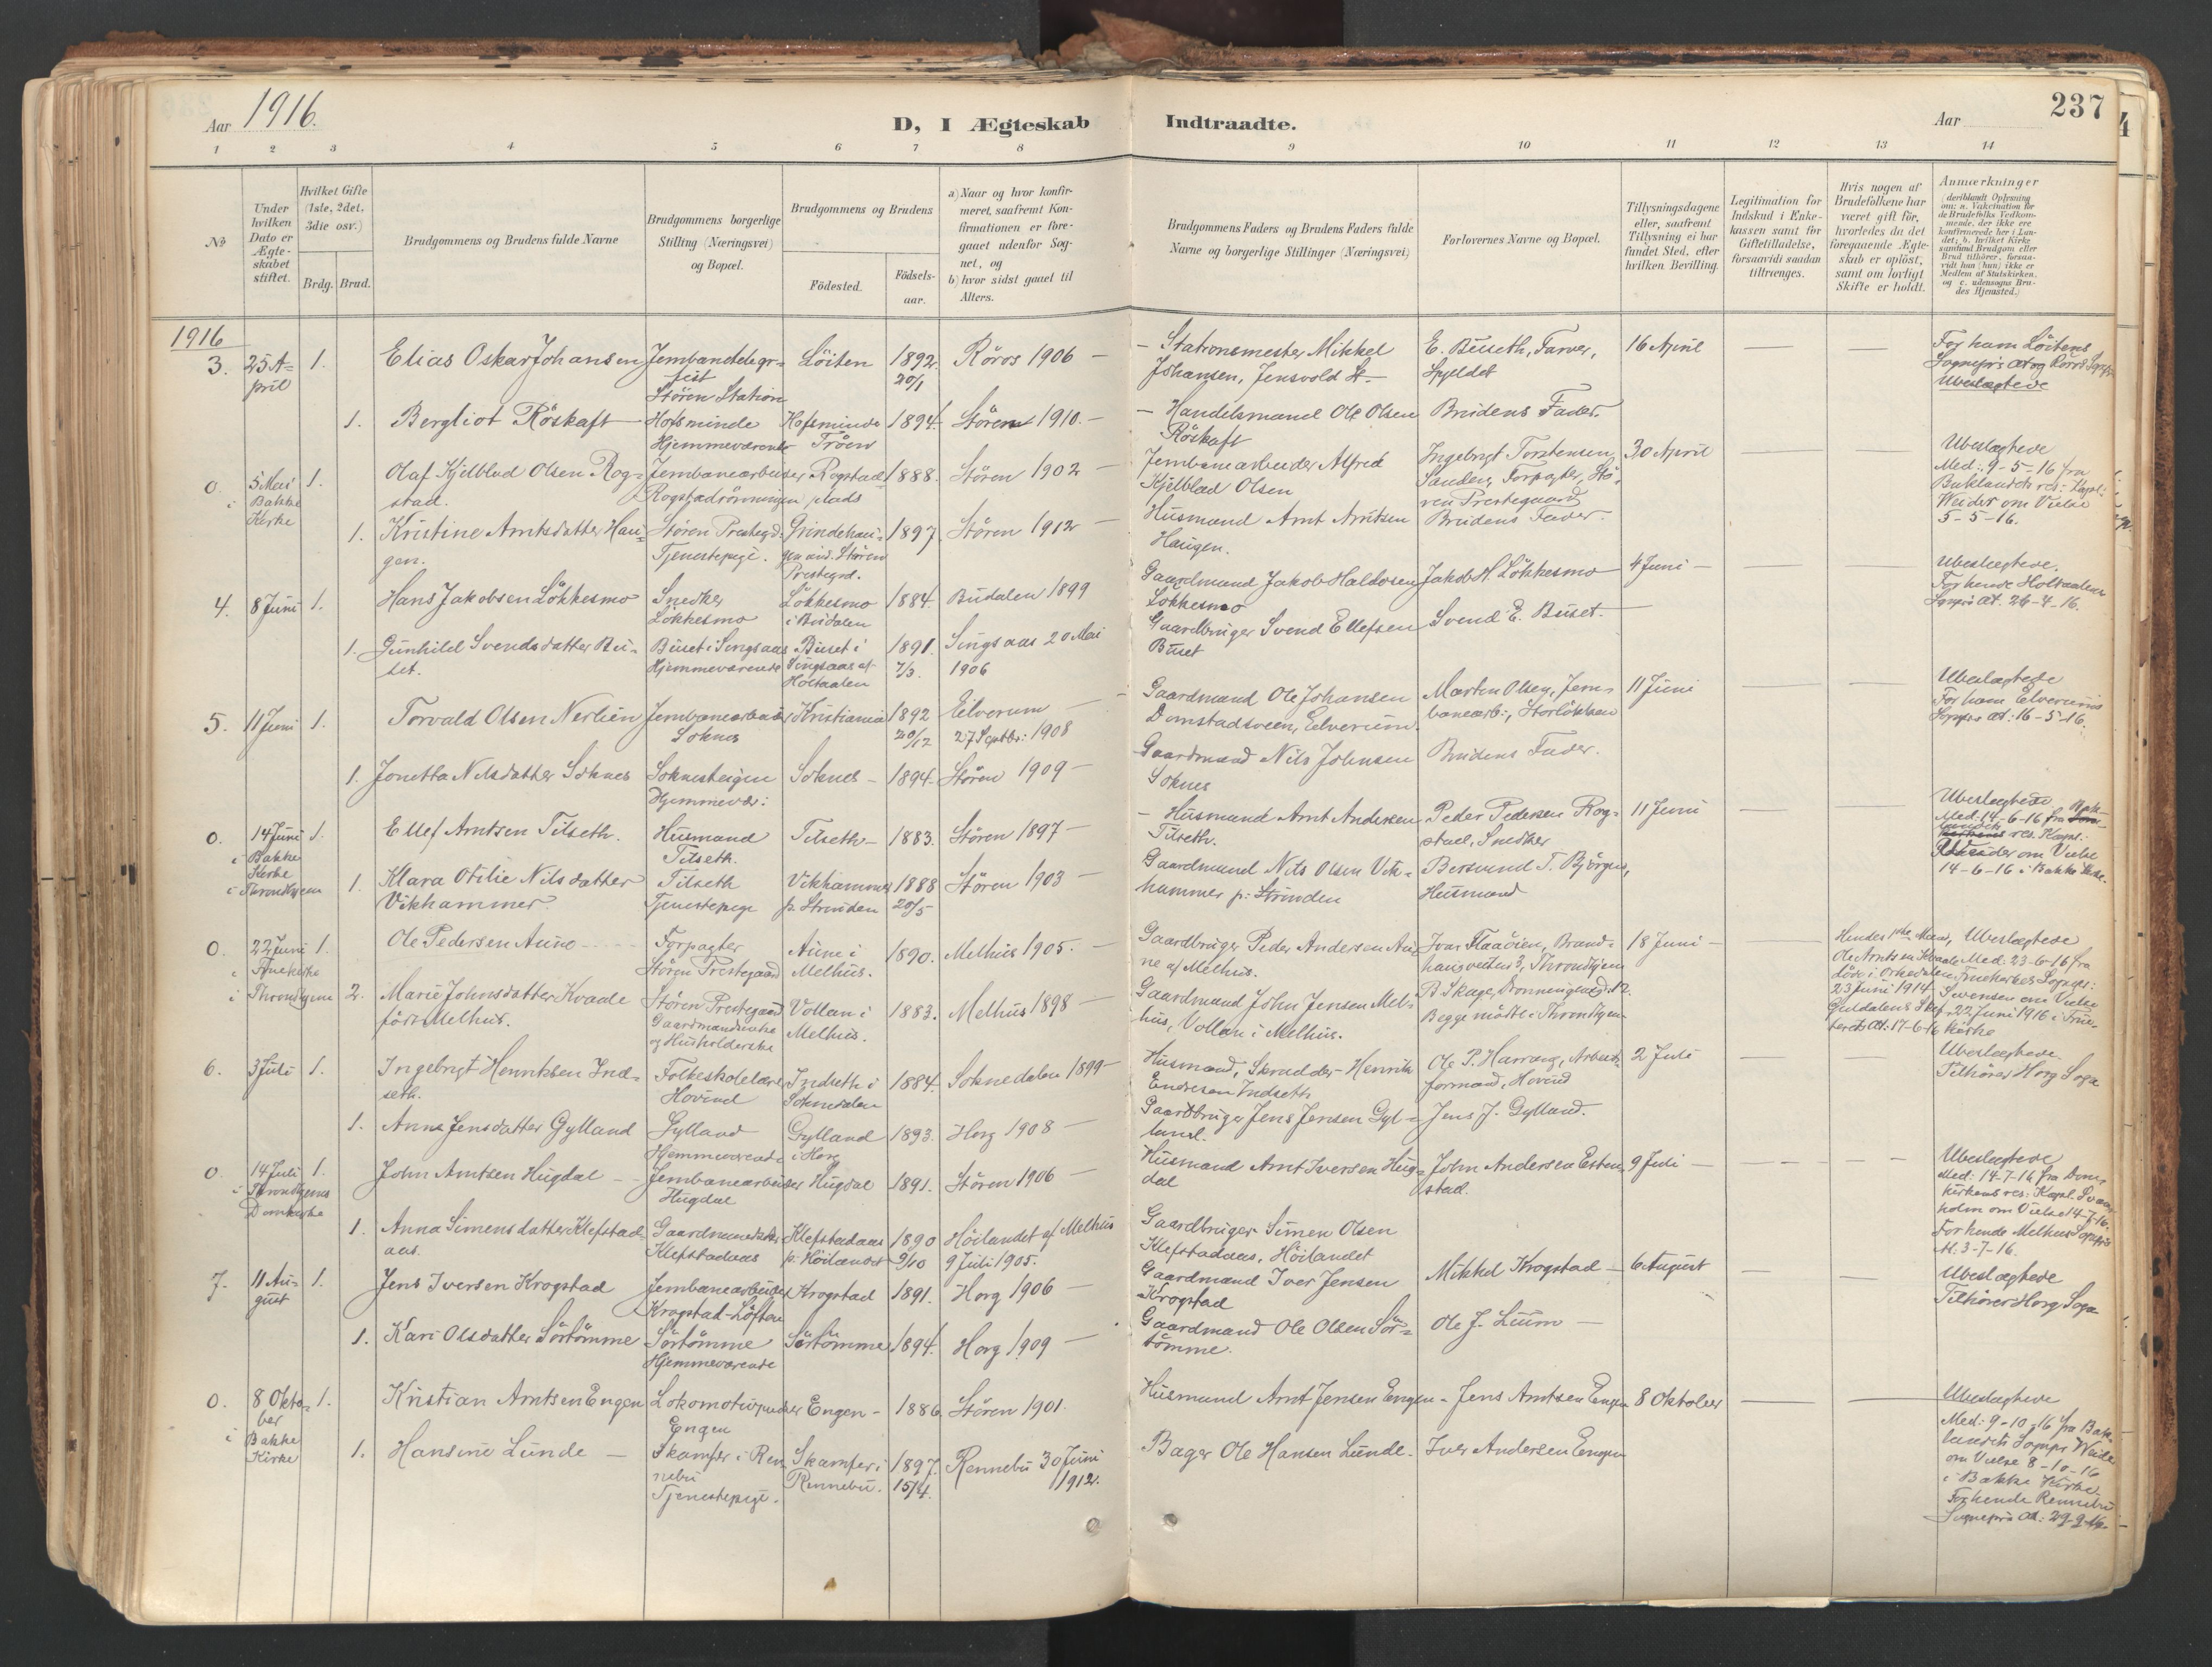 Aar 1916.
D, I Ægteskab Indtraadte.
Aar
237
1 2 3 4 5 6 7 8 9 10 11 12 13 14
No
Under hvilken Dato er Ægteskabet stiftet.
Hvilket Gifte (1ste, 2det, 3die osv.)
Brdg. Brud.
Brudgommens og Brudens fulde Navne
Brudgommens borgerlige Stilling (Næringsvei) og Bopæl.
Brudgommens og Brudens
Födested.
Födsels-aar.
a) Naar og hvor konfirmeret, saafremt Konfirmationen er foregaaet udenfor Sognet, og
b) hvor sidst gaaet til Alters.
Brudgommens Faders og Brudens Faders fulde Navne og borgerlige Stillinger (Næringsvei)
Forlovernes Navne og Bopæl.
Tillysningsdagene eller, saafremt Tillysning ei har fundet Sted, efter hvilken Bevilling.
Legitimation for Indskud i Enkekassen samt for Giftetilladelse, forsaavidt saadan tiltrænges.
Hvis nogen af Brudefolkene har været gift før, hvorledes da det foregaaende Ægteskab er oplöst, samt om lovligt Skifte er holdt.
Anmærkninger
(deriblandt Oplysning om: a. Vakcination for de Brudefolks Vedkommende, der ikke ere konfirmerede her i Landet; b. hvilket Kirkesamfund Brudgom eller Brud tilhörer, forsaavidt han (hun) ikke er Medlem af Statskirken, og c. udensogns Brudes Hjemsted.)
1916
3. 25 April 1. Elias Oskar Johansen Jernbanetelegrafist Stören Station Löiten 1892 20/1 Röros 1906 — Stationsmester Mikkel Johansen, Jensvold St. E. Buseth, Farver, Spjeldet 16 April — — For ham Löitens Sognepr's At og Röros Sognepr. Ubeslægtede
1. Bergliot Röskaft Hofsminde Hjemmeværende Hofsminde Tröen 1894 Stören 1910. — Handelsmand Ole Olsen Röskaft Brudens Fader.
0. 5 Mai i Bakke Kirke 1. Olaf Kjelblad Olsen Rogstad. Jernbanearbeider Rogstadrönningen Rogstad plads 1888. Stören 1902 — Jernbanearbeider Alfred Kjelblad Olsen Ingebrigt Torstensen Sanden, Forpagter, Stören Prestegaard 30 April — — Ubeslægtede Med: 9-5-16 fra Baklandets res: Kapl: Weider om Vielse 5-5-16.
1. Kristine Arntsdatter Haugen. Stören Prestegd. Tjenestepige. Grindehaugen und. Stören Prestegrd. 1897. Stören 1912 — Husmand Arnt Arntsen Haugen. Brudens Fader.
4. 8 Juni 1. Hans Jakobsen Lökkesmo Snedker Lökkesmo Lökkesmo i Budalen 1884. Budalen 1899 Gaardmand Jakob Haldosen Lökkesmo Jakob H. Lökkesmo 4 Juni — Ubeslægtede. For hende Holtaalens Sognpr's At. 26-4-16.
1. Gunhild Svendsdatter Buset. Buset i Singsaas Hjemmeværende Buset i Singsaas af Holtaalen 1891. 7/3. Singsaas 20 Mai 1906 Gaardbruger Svend Ellefsen Buset Svend E. Buset.
5. 11 Juni 1. Torvald Olsen Nerlien Jernbanearbeider Soknes Kristiania 1892 20/12 Elverum 27 Septbr: 1908 Gaardmand Ole Johansen Domstadsveen, Elverum. Marten Olsen, Jernbanearb:, Storløkken 11 Juni — — Ubeslægtede For ham Elverums Sogpr's At: 16-5-16.
1. Jonetta Nilsdatter Soknes Soknesteigen Hjemmevær: Soknes 1894. Stören 1909 — Gaardmand Nils Johnsen Soknes Brudens Fader.
0. 14 Juni i Bakke Kirke i Throndhjem 1. Ellef Arntsen Tilseth. Husmand Tilseth. Tilseth 1883. Stören 1897 — Husmand Arnt Andersen Tilseth. Peder Pedersen Rogstad, Snedker 11 Juni — — Ubeslægtede Med: 14-6-16 fra Baklandets res. Kapl: Weider om Vielse 14-6-16 i Bakke Kirke.
1. Klara Otilie Nilsdatter Vikhammer. Tilseth Tjenestepige Vikhammer p. Strinden 1888 20/5 Stören 1903 — Gaardmand Nils Olsen Vikhammer p: Strinden Bersvend T. Bjørgen, Husmand
0. 22 Juni i Fruekirke i Throndhjem 1. Ole Pedersen Aune Forpagter Stören Prestegaard Aune i Melhus. 1890. Melhus 1905. — Gaardbruger Peder Andersen Aune af Melhus. Ivar Flaaöien, Brandhausveiten 3, Throndhjem 18 Juni — Hendes 1ste Mand, Ole Arntsen Kvaale döde i Orkedalen 23 Juni 1914. Guldalens Skifterets At: 17-6-16 Ubeslægtede Med: 23-6-16 fra Fruekirkes Sognepr: Svensen om Vielse 22 Juni 1916 i Fruekirke
2. Marie Johnsdatter Kvaale född Melhus. Stören Prestegaard Gaardmandsenke og Husholderske Vollan i Melhus. 1883. Melhus 1898 — Gaardmand John Jensen Melhus, Vollan i Melhus. B. Skage, Dronningensgd. 12. Begge mödte i Throndhjem
6. 3 Juli 1. Ingebrigt Henriksen Indseth. Folkeskolelærer Hovind Indseth i Soknedalen 1884. Soknedalen 1899 — Husmand, Skrædder Henrik Endresen Indseth Ole P. Harrang, Arbeidsformand, Hovind 2 Juli — — — Ubeslægtede. Tilhörer Horg Sogn
1. Anna Jensdatter Gylland Gylland Hjemmeværende Gylland i Horg 1893. Horg 1908 — Gaardbruger Jens Jensen Gylland. Jens J. Gylland.
0. 14 Juli i Throndhjems Domkirke 1. John Arntsen Hugdal Jernbanearbeider Hugdal Hugdal 1891. Stören 1906 — Husmand Arnt Iversen Hugdal John Andersen Estenstad. 9 Juli — Ubeslægtede Med: 14-7-16 fra Domkirkens res: Kapl. Svanholm om Vielse 14-7-16. For hende Melhus Sognpr's At. 3-7-16.
1. Anna Simensdatter Klefstadaas. Gaardmandsdatter Klefstadaas Klefstadaas p. Höilandet 1890 9/10 Höilandet af Melhus 9 Juli 1905. Gaardbruger Simen Olsen Klefstadaas, Höilandet
7. 11 August 1. Jens Iversen Krogstad Jernbanearbeider Krogstad-Löften Krogstad 1891. Horg 1906 — Gaardmand Iver Jensen Krogstad Mikkel Krogstad — 6 August — — Ubeslægtede Tilhörer Horg Sogn
1. Kari Olsdatter Sörtömme Sörtömme Hjemmeværende Sörtömme 1894. Horg 1909 — Gaardmand Ole Olsen Sörtömme. Ole J. Lium —
0. 8 Oktober i Bakke Kirke 1. Kristian Arntsen Engen Lokomotivpudser Engen Engen 1886 Stören 1901. Husmand Arnt Jensen Engen Jens Arntsen Engen 8 Oktober — — Ubeslægtede Med: 9-10-16 fra Baklandets Sognpr Weider om Vielse 8-10-16 i Bakke Kirke. For hende Rennebu Sognepr's At: 29-9-16.
1. Hansine Lunde — Skamfer i Rennebu Tjenestepige. Skamfer i Rennebu. 1897. 15/4. Rennebu 30 Juni 1912. Bager Ole Hansen Lunde. Iver Andersen Engen